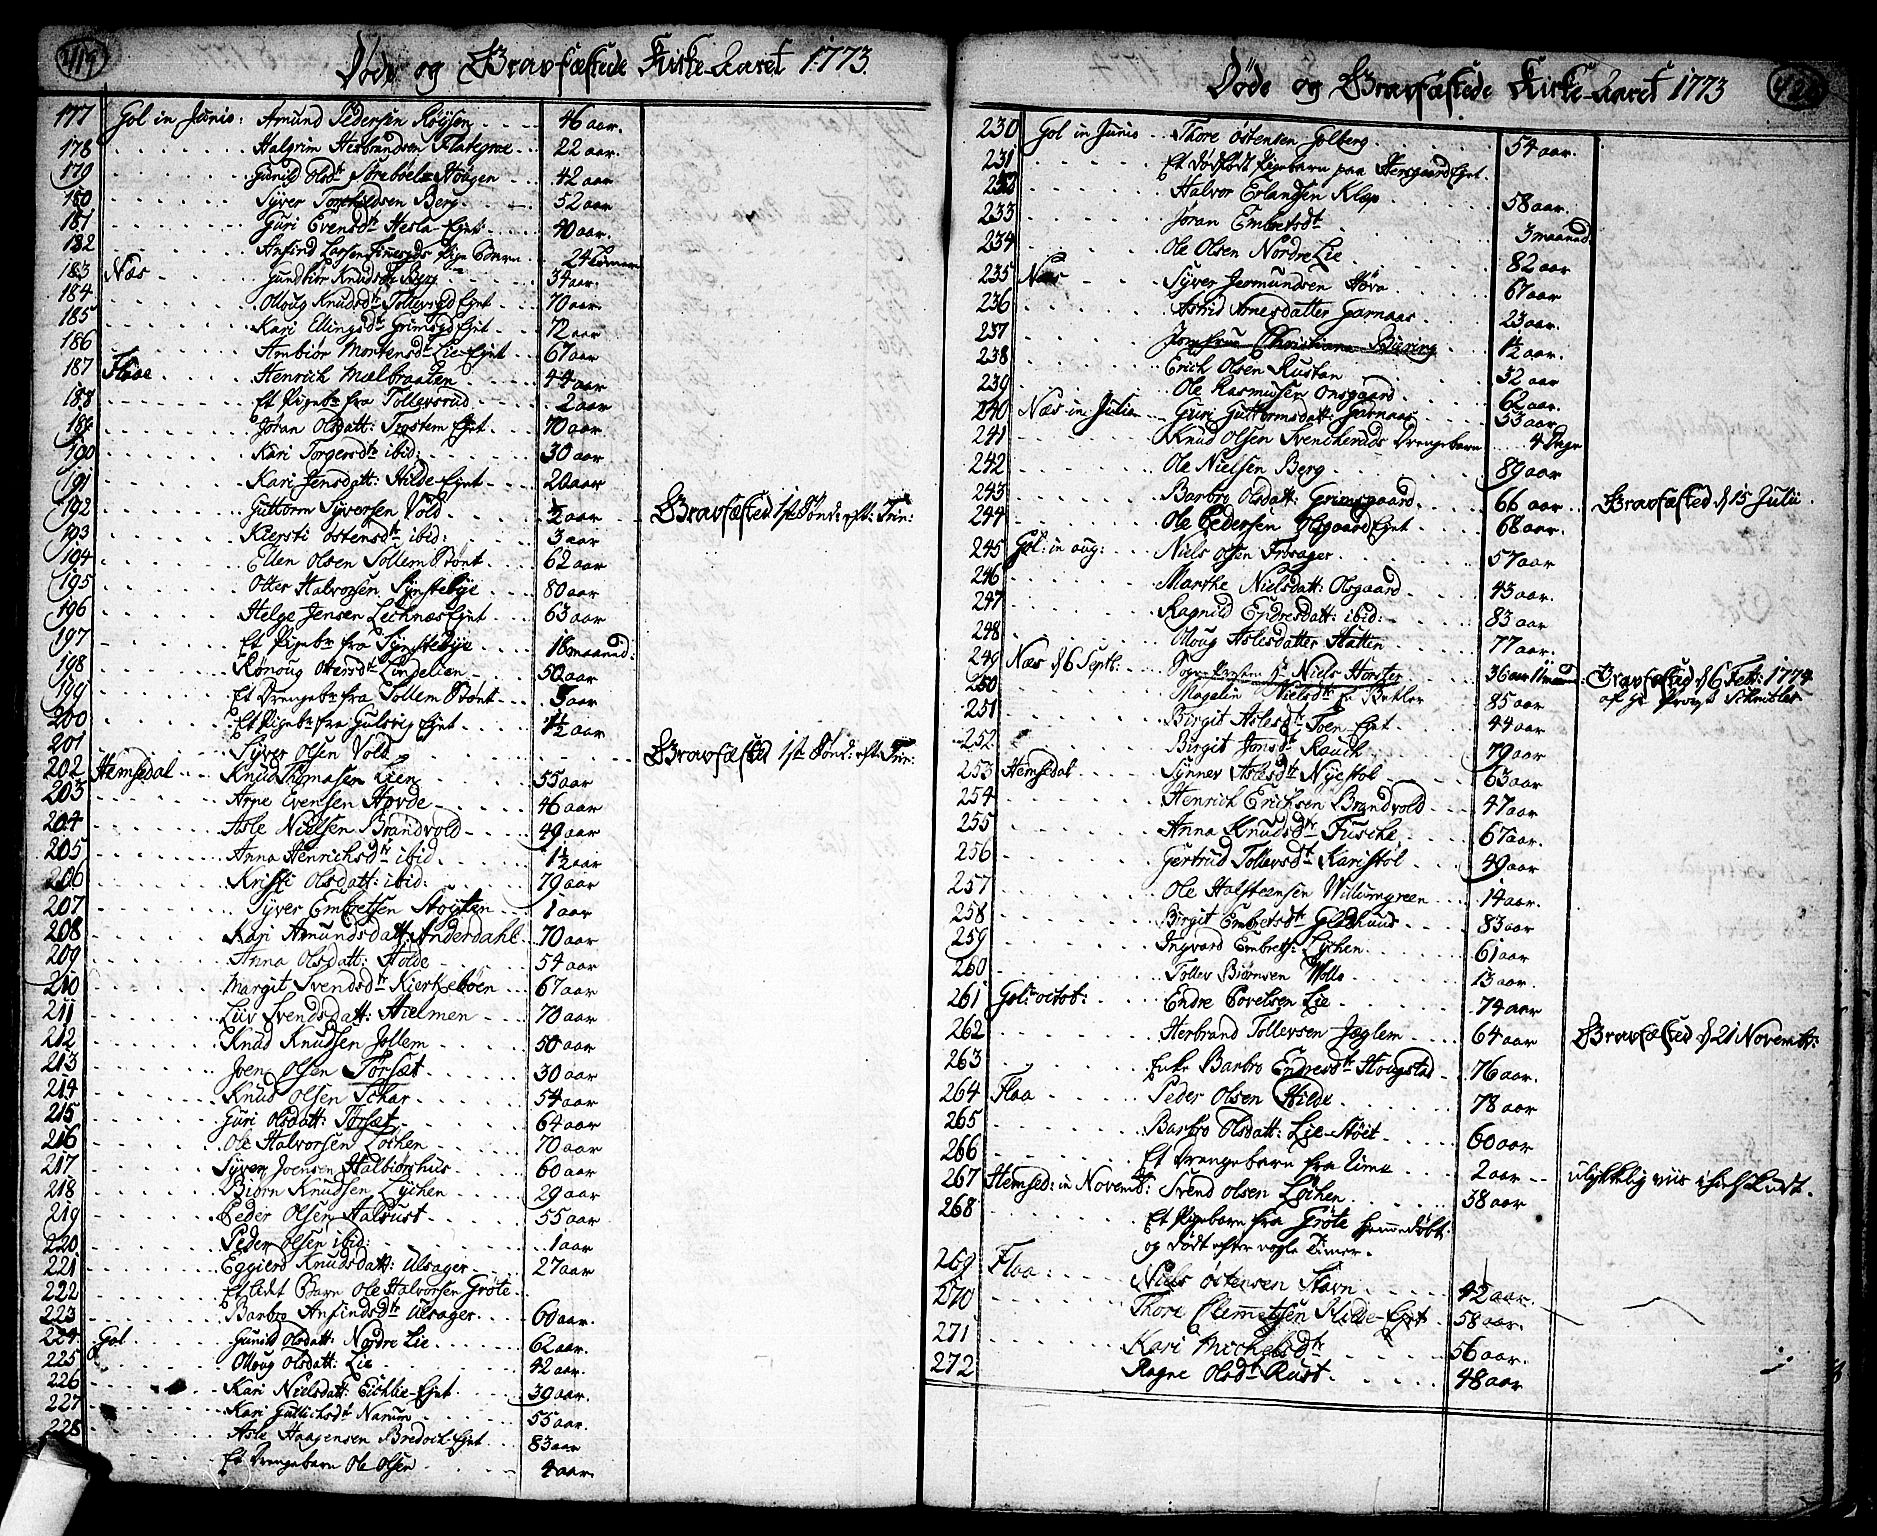 419
Døde og Gravfæstede Kirke-Aaret 1773.
177 Gol in Junio: Amund Pedersen Røysen 46 aar.
178 Halgrim Herbrandsen Flategrae 22 aar.
179 Gunild Olsdtr Sørebøele-Hougen 42 aar
180 Syver Torchildsen Berg 52 aar
181 Guri Evensdtr Hesla-Eÿet 40 aar.
182 Anfind Larsen 24
183 Næs Gundbiør Knudsdtr Berg 34 aar.
184 Olloug Knudsdtr Tollevsgd Eÿet 70 aar.
185 Kari Ellingsdtr Grimsgd Eÿet 72 aar
186 Ambiør Mortensdtr Lie-Eÿet 67 aar
187 Flaae Henrich Mælbraaten 44 aar
188 Et Pigebn fra Tollevsrud 2 aar
189 Joran Olsdatt: Trostem Eÿet 70 aar
190 Kari Torgersdtr ibid: 30 aar
191 Kari Jensdatt: Hilde-Eÿet 20 aar
192 Guttorm Syversen Vold ½ aar Gravfæsted 1ste Sønd: eft: Trin:
193 Kiersti Østensdtr ibid: 3 aar
194 Ellen Olsen Sollem Stønt 62 aar
195 Otter Halvorsen Synstebye 80 aar
196 Helge Jensen Lechnæs Eÿet 63 aar
197 Et Pigebn fra Synstebye 16 maaned:
198 Rønoug Otersdtr Lindelien 50 aar
199 Et Drengebn fra Sollem Stønt 5 aar
200 Et Pigebn fra Gulsvig Eÿet 1½ aar
201 Syver Olsen Vold Gravfæsted 1ste Sønd: eft: Trin:
202 Hemsedal Knud Thomasen Lien 55 aar
203 Arne Evensen Hovde 46 aar
204 Asle Nielsen Brandvold 49 aar
205 Anna Henrichsdtr ibid 1½ aar
206 Kristi Olsdatt: ibid: 79 aar
207 Syver Embretsen Støyten 1 aar
208 Kari Amundsdatt: Anderdahl 70 aar
209 Anna Olsdatt: Holde 54 aar
210 Margit Svendsdtr Kierkebøen 67 aar
211 Liv Svendsdatt: Hielmen 70 aar
212 Knud Knudsen Jollem 50 aar
213 Joen Olsen Torset 30 aar
214 Knud Olsen Schar 54 aar
215 Guri Olsdatt: Torset 64 aar
216 Ole Halvorsen Løchen 70 aar
217 Syver Joensen Halbiørhus 60 aar
218 Biørn Knudsen Lychen 29 aar
219 Peder Olsen Aalrust 55 aar
220 Peder Olsen ibid: 1 aar
221 Eggierd Knudsdatt: Ulsager 27 aar
222 Et lidet Barn Ole Halvorsen Grøte
223 Barbro Anfindsdtr Ulsager 60 aar.
224 Gol Gunild Olsdatt: Nordre Lie 62 aar.
225 Olloug Olsdatt: Lie 42 aar.
226 Kari Nielsdatt: Eichlie-Eÿet 39 aar.
227 Kari Guttichsdtr Narum 55 aar.
228 Asle Haagensen Bredoch Eÿet 83 aar
Et Drengebarn Ole Olsen 4 aar.
Døde og Gravfæstede Kirke-Aaret 1773
230 Gol in Junio Thore Østensen Golberg 54 aar.
231 Et dødfødt Pigebarn paa Hersgaard Eÿet.
232 Halvor Erlandsen Klop 58 aar.
233 Joran Embretsdtr 3 maaned
234 Ole Olsen Nordre Lie 82 aar
235 Næs Syver Jermundsen Hova 67 aar
236 Astrid Arnesdatter Garnaas 23 aar.
237 Jomfrue Christiane Biering 1½ aar.
238 Erich Olsen Rustan 32 aar
239 Ole Rasmusen Onsgaard 62 aar.
240 Næs in Julio Guri Guttormsdatt: Garnaas 53 aar
241 Knud Olsen Svencheruds Drengebarn 4 Dage
242 Ole Nielsen Berg 89 aar
243 Barbro Olsdatt: Grimsgaard 66 aar Gravfæsted d. 15 Julii
244 Ole Pedersen Olsgaard Eÿet 68 aar.
245 Gol: in aug: Niels Olsen Frøsager 57 aar
246 Marthe Nielsdatt: Olsgaard 43 aar.
247 Ragnild Endresdatt: ibid: 83 aar
248 Olloug Aslesdatter Hatten 77 aar.
249 Næs d. 6 Septb: Sogne-Præsten Hr Niels Horster 36 aar 11 maaned: Gravfæsted d. 6 Feb: 1774
250 Magelin Nielsdtr 85 aar af Hr Provst Schnitler
251 Birgit Aslesdtr Toen-Eÿet 44 aar
252 Birgit Jonsdtr Rauch 79 aar
253 Hemsedal Synnev Aslesdtr Nystøl 63 aar
254 Henrich Erichsen Brandvold 47 aar
255 Anna Knudsdtr Fusche 67 aar.
256 Gertrud Tollevsdtr Karistøl 49 aar
257 Ole Halsteensen Willumgreen 14 aar.
258 Birgit Embretsdtr Gladhuus 83 aar
259 Ingvord Embrets: Lychen 61 aar
260 Tollev Biørnsen Wollo 13 aar.
261 Gol: octob: Endre Povelsen Lie 74 aar
262 Herbrand Tollevsen Jæglem 64 aar Gravfæsted d. 21 Novembr:
263 Enke Barbro Endresdtr Hougstad 76 aar.
264 Flaa Peder Olsen Hilde 78 aar
265 Barbro Olsdatt: Lie-Støit 60 aar
266 Et Drengebarn fra Lime 2 aar ulykkelig viis
267 Hemsed: in Novemb: Svend Olsen Løchen 58 aar
268 Et Pigebarn fra Grøte hiemmedøbt
og dødt efter nogle Timer.
269 Flaa: Niels Østensen Stavn 42 aar.
270 Thore Clemetsen Hilde-Eÿet 58 aar.
271 Kari Michelsdtr 56 aar.
272 Ragne Olsdtr Rust 48 aar